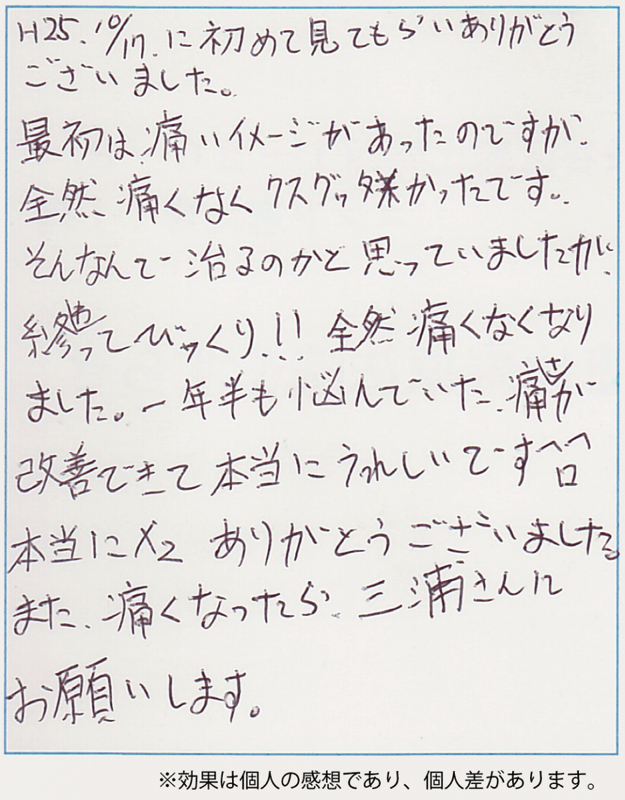 H25.10/17.に初めて見てもらいありがとう
ございました。
最初は、痛いイメージがあったのですが、
全然、痛くなくクスグッタ嫌かったです。
そんなんで治るのかと思っていましたが、
終わってびっくり!!全然痛くなくなり
ました。一年半も悩んでいた、痛さが
改善できて本当にうれしいです^ロ^
本当に×2 ありがとうございました。
また、痛くなったら、三浦さんに
お願いします。
※効果は個人の感想であり、個人差があります。